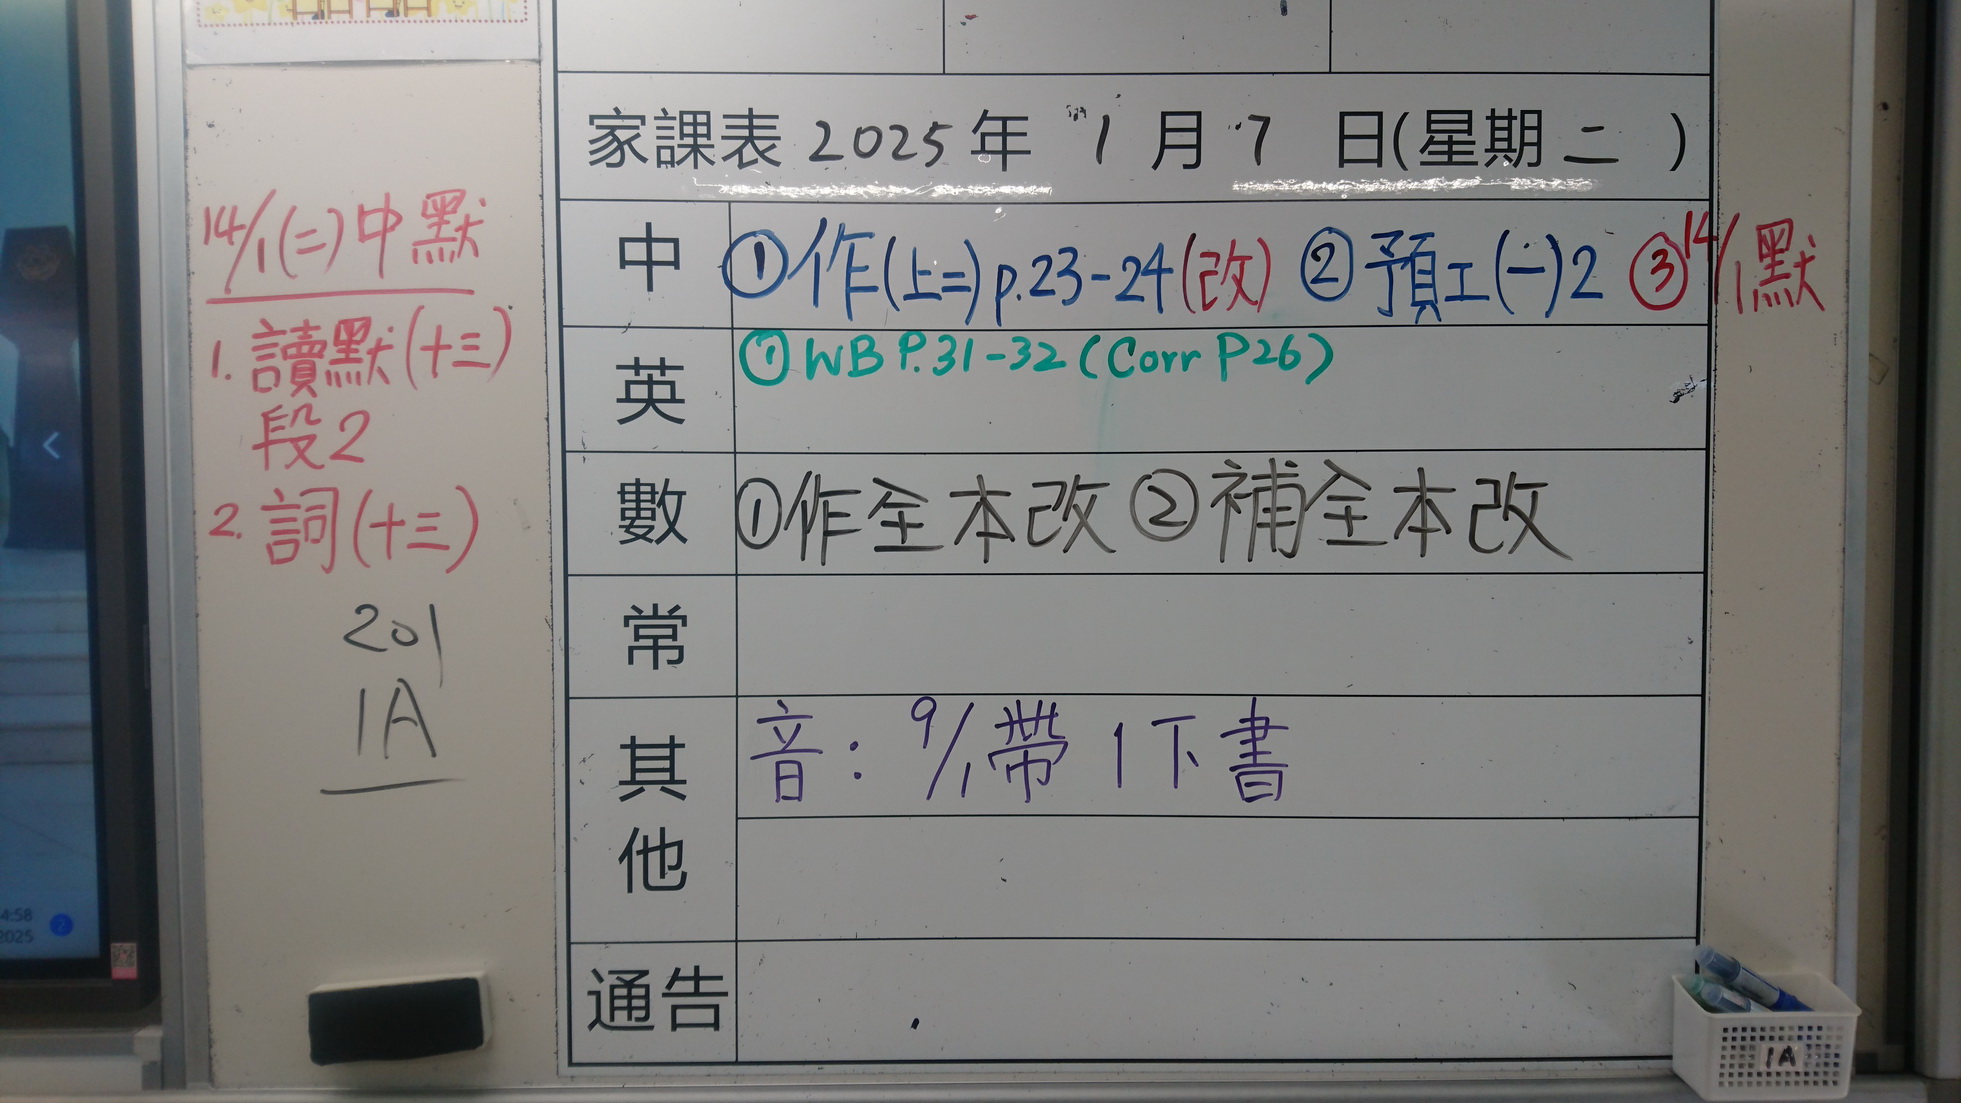 家課表 2025 年 1 月 7 日(星期二)
中 ①作(上二)p.23-24(改) ②預工(一)2 ③14/1默
英 ①WB P.31-32 (Corr P26)
數 ①作全本改 ②補全本改
常
其他 音：9/1帶1下書
通告
14/1(二)中默
1. 讀默(十三)
段2
2. 詞(十三)
201
1A
4:58
2025
2
1A